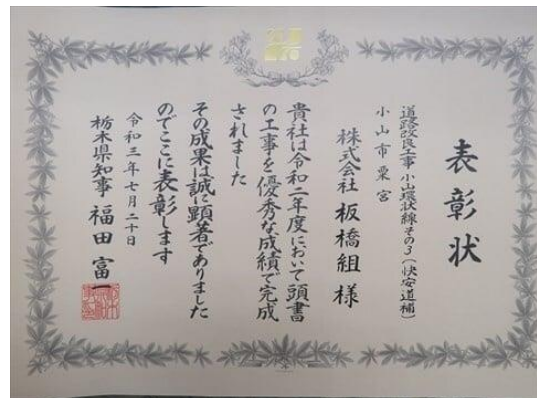 表彰状
道路改良工事 小山環状線その3(快安道補)
小山市粟宮
株式会社 板橋組 様
貴社は令和二年度において頭書
の工事を優秀な成績で完成
されました
その成果は誠に顕著でありました
のでここに表彰します
令和三年七月二十日
栃木県知事 福田富一